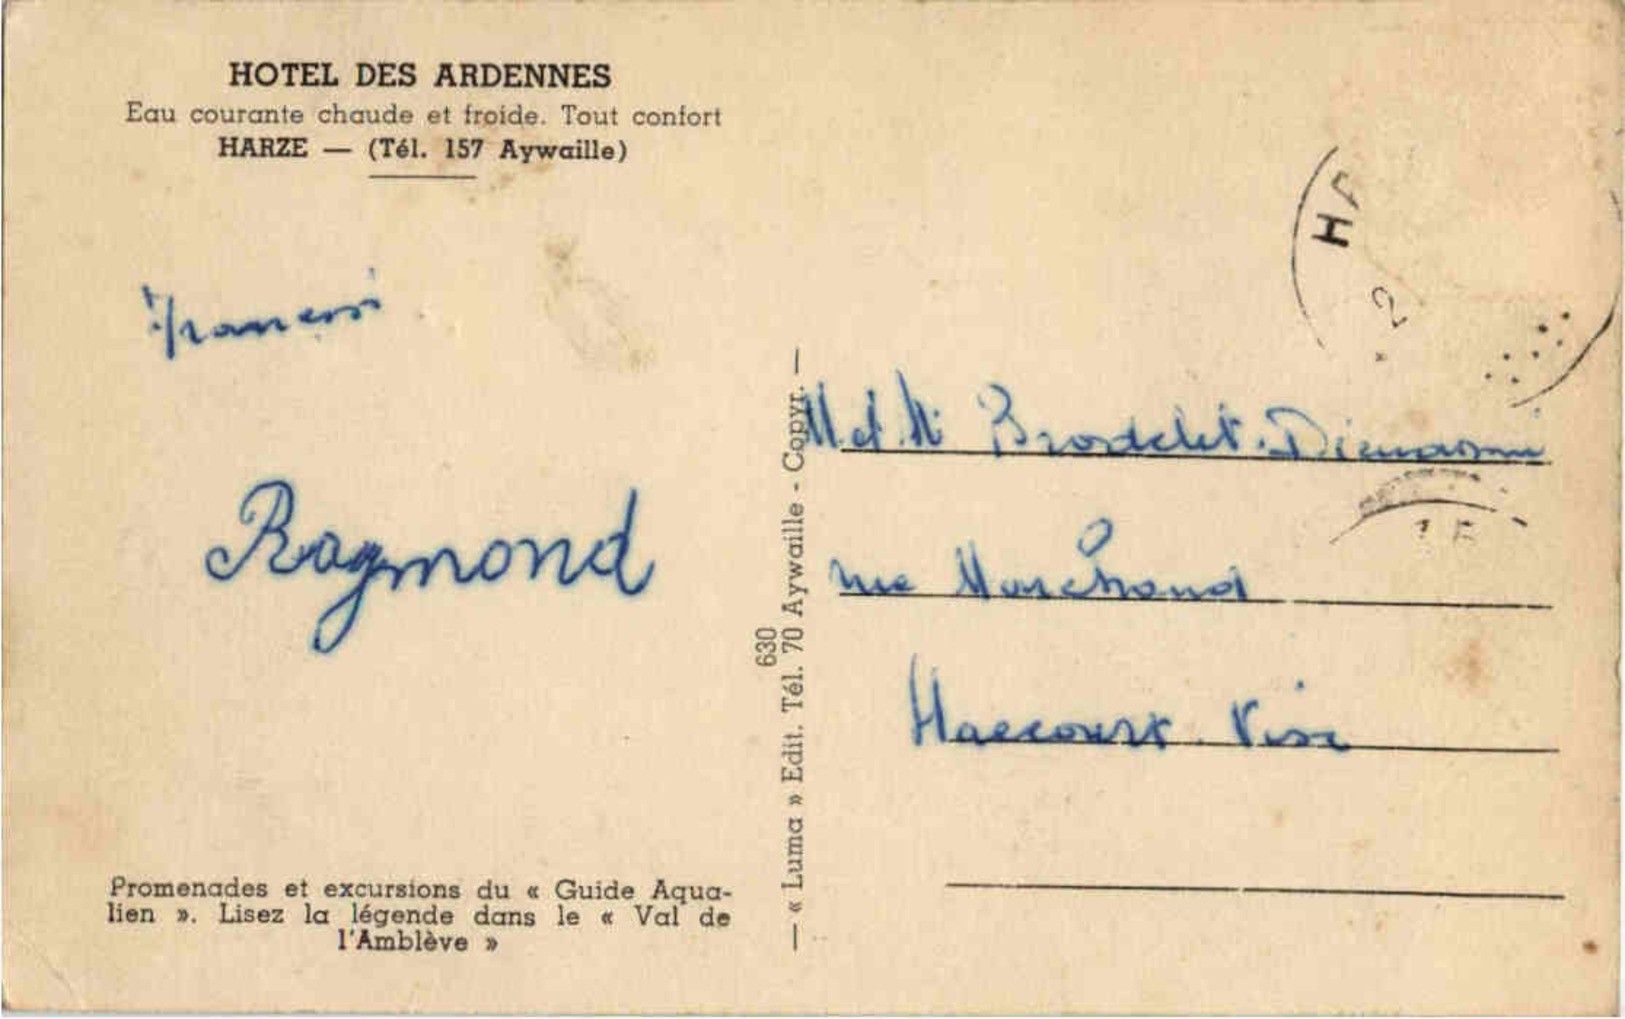 HOTEL DES ARDENNES
Eau courante chaude et froide. Tout confort
HARZE — (Tél. 157 Aywaille)
Raymond
Promenades et excursions du « Guide Aqua-
lien ». Lisez la légende dans le « Val de
l'Amblève »
630
— « Luma » Edit. Tél. 70 Aywaille - Copyr. —
HA
2
M. et M Brodelet.
rue Marchand
Haccourt. Visé